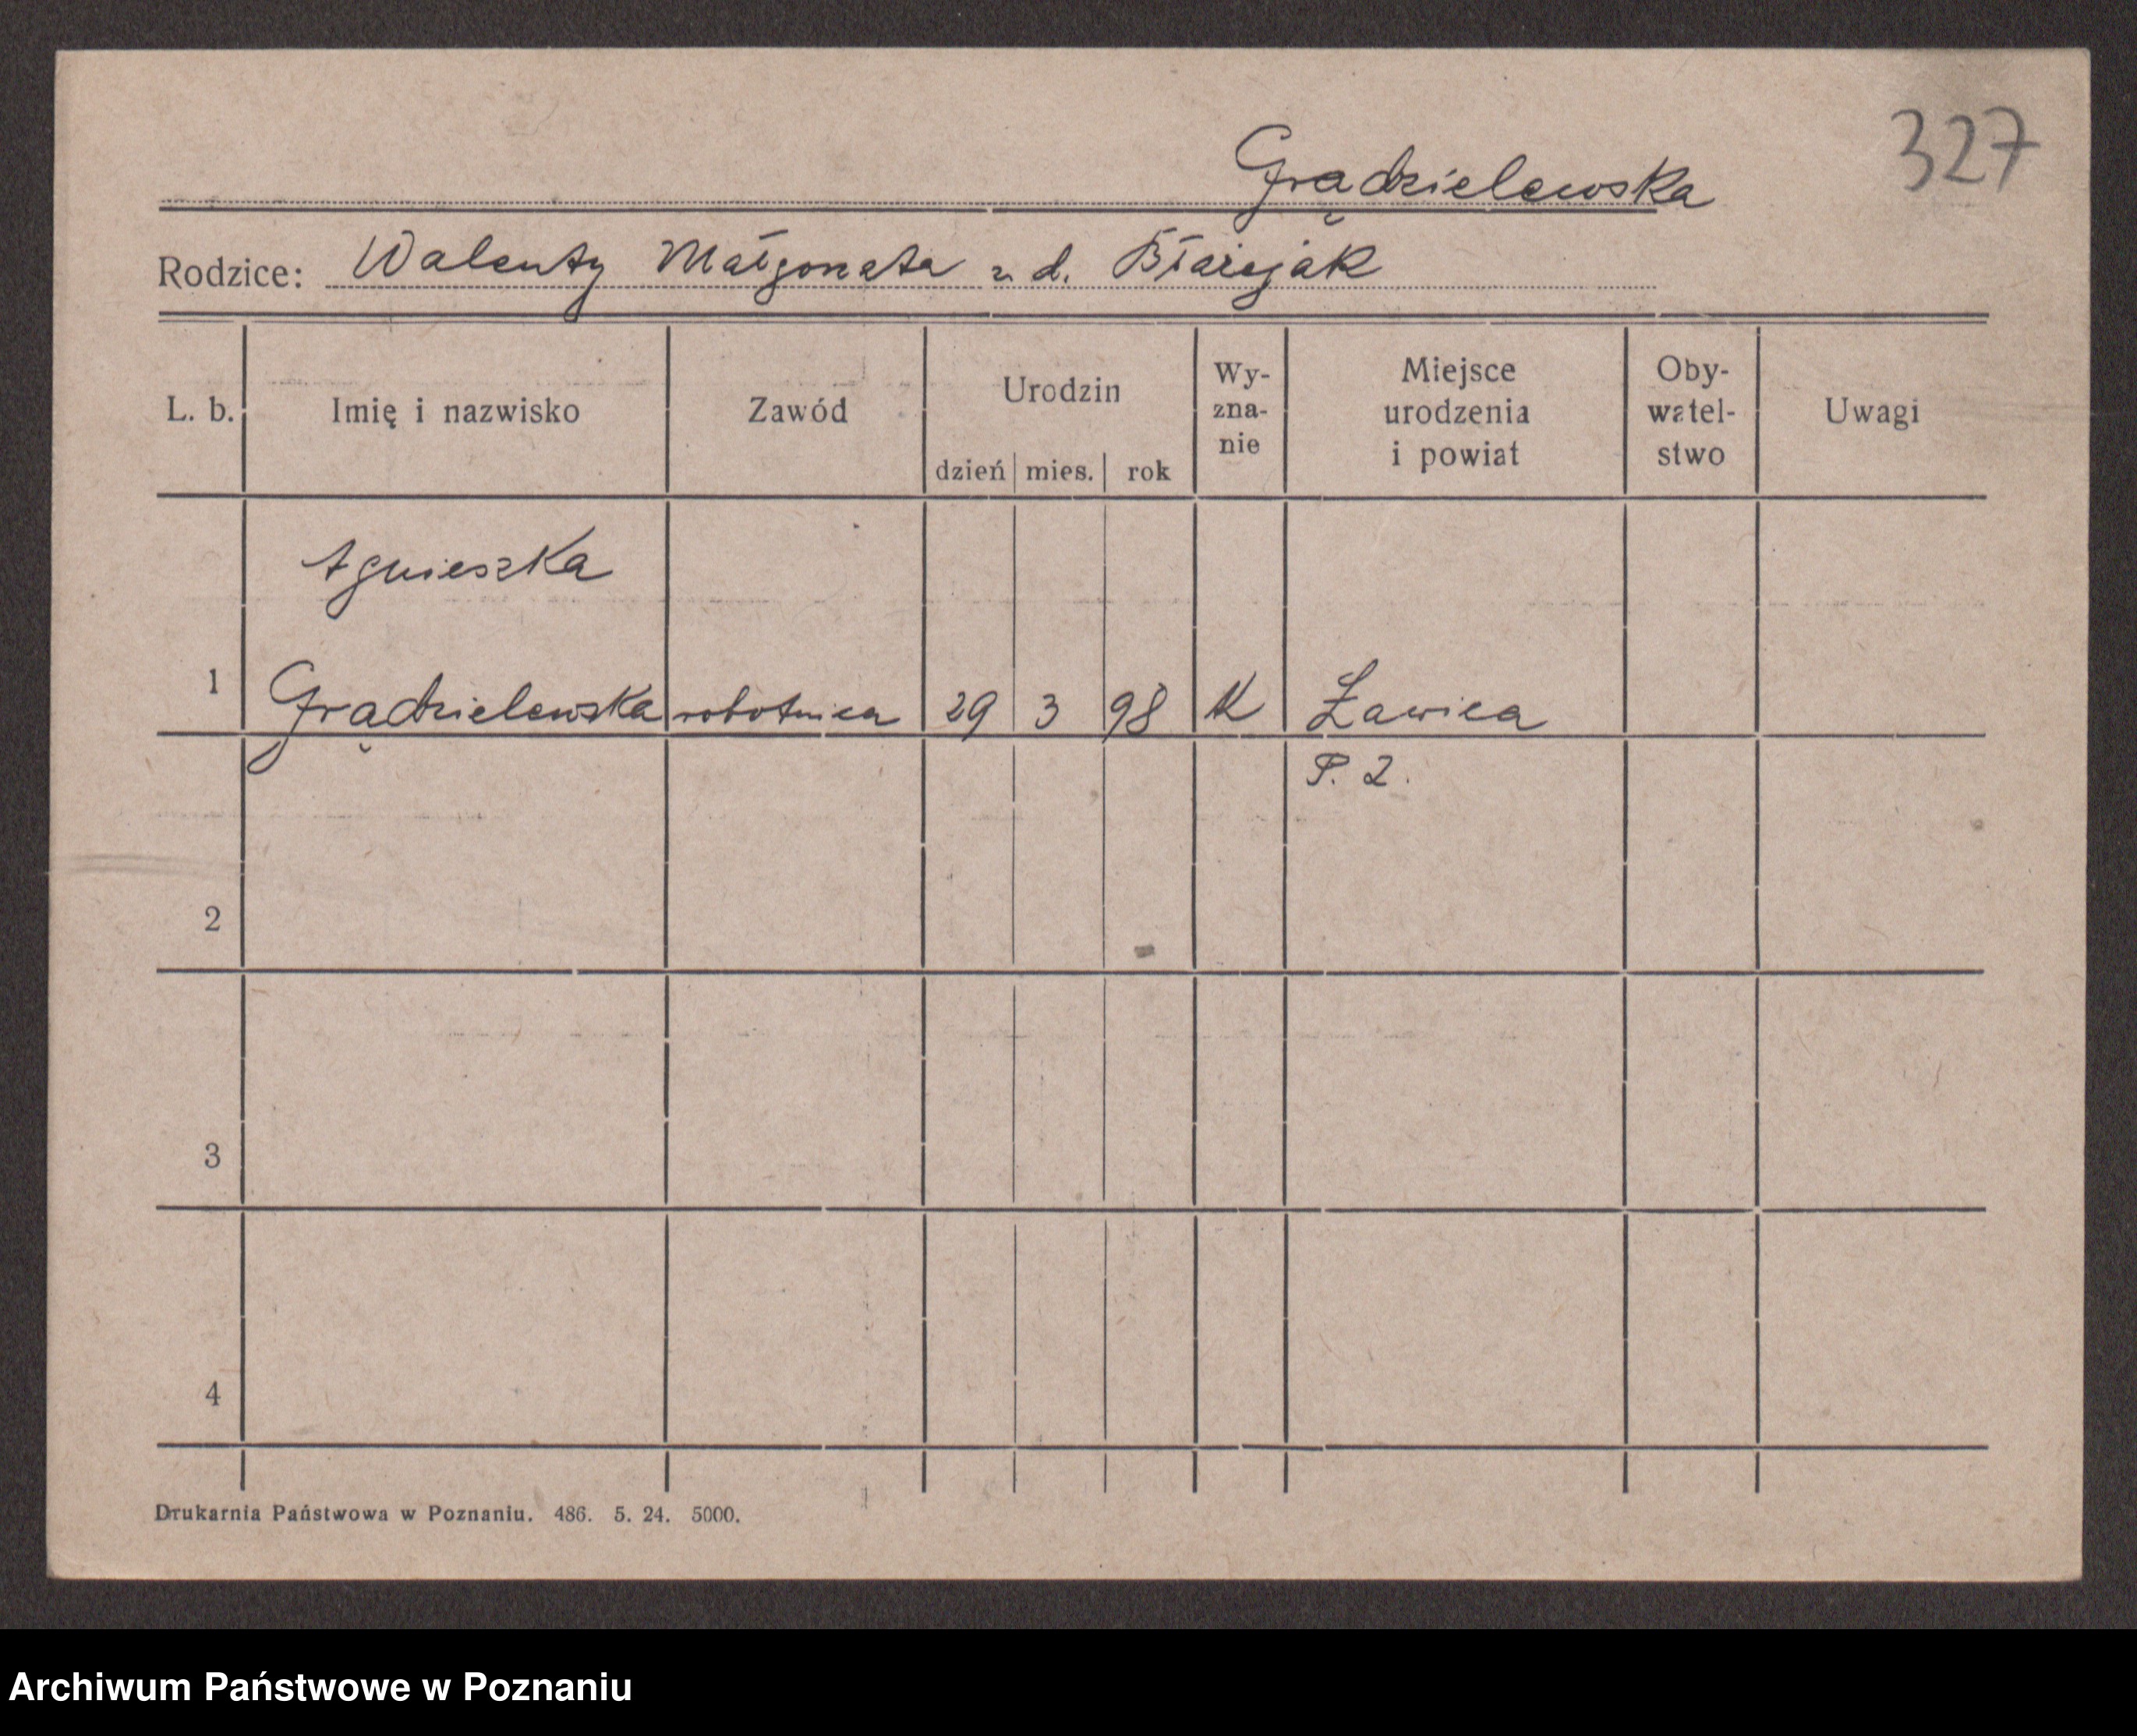 327
Grądzielewska
Rodzice: Walenty Małgorzata z d. Błażejak
L. b. Imię i nazwisko Zawód Urodzin dzień mies. rok Wy-zna-nie Miejsce urodzenia i powiat Oby-watel-stwo Uwagi
Agnieszka
1 Grądzielewska robotnica 29 3 98 K Ławica
P. Z.
2
3
4
Drukarnia Państwowa w Poznaniu. 486. 5. 24. 5000.
Archiwum Państwowe w Poznaniu